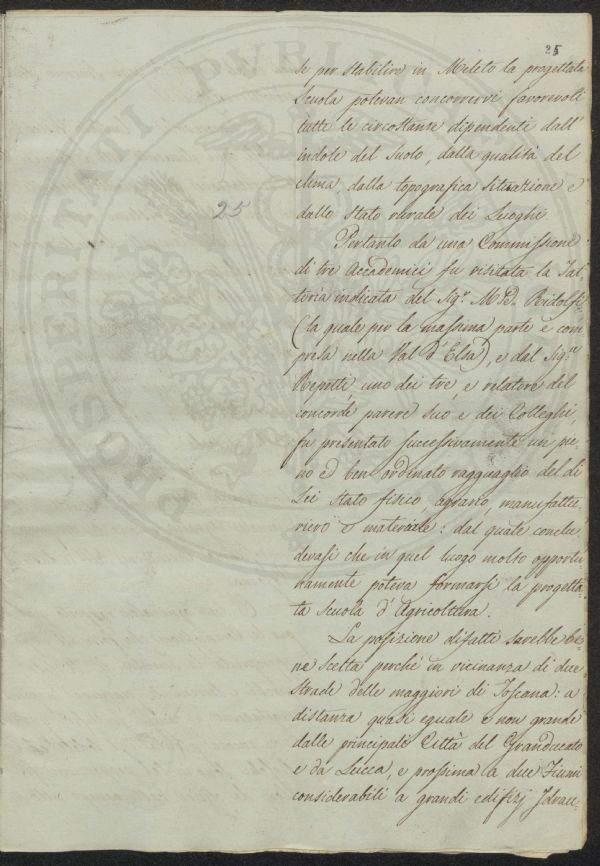 25
se per stabilire in Meleto la progettata
Scuola potevan concorrervi favorevoli
tutte le circostanze dipendenti dall'
indole del Suolo, dalla qualità del
clima, dalla topografica situazione e
dallo Stato rurale dei Luoghi.
25
Pertanto da una Commissione
di tre Accademici fu visitata la Fat
toria indicata dal Sig.r M.se Ridolfi
(la quale per la massima parte è com
presa nella Val d'Elsa), e dal Sig.re
Repetti, uno dei tre, e relatore del
concorde parere suo e dei Colleghi,
fu presentato successivamente un pie.
no e ben ordinato ragguaglio del di
Lei stato fisico, agrario, manufattu.
riero e materiale: dal quale conclu
devasi che in quel luogo molto opportu.
namente poteva formarsi la progetta.
ta Scuola d'Agricoltura.
La posizione difatti sarebbe be.
ne scelta perché in vicinanza di due
Strade delle maggiori di Toscana: a
distanza quasi eguale e non grande
dalle principali Città del Granducato
e da Lucca, e prossima a due Fiumi
considerabili a grandi edifizj Idrau.
PROSPERITATI PVBLICAE